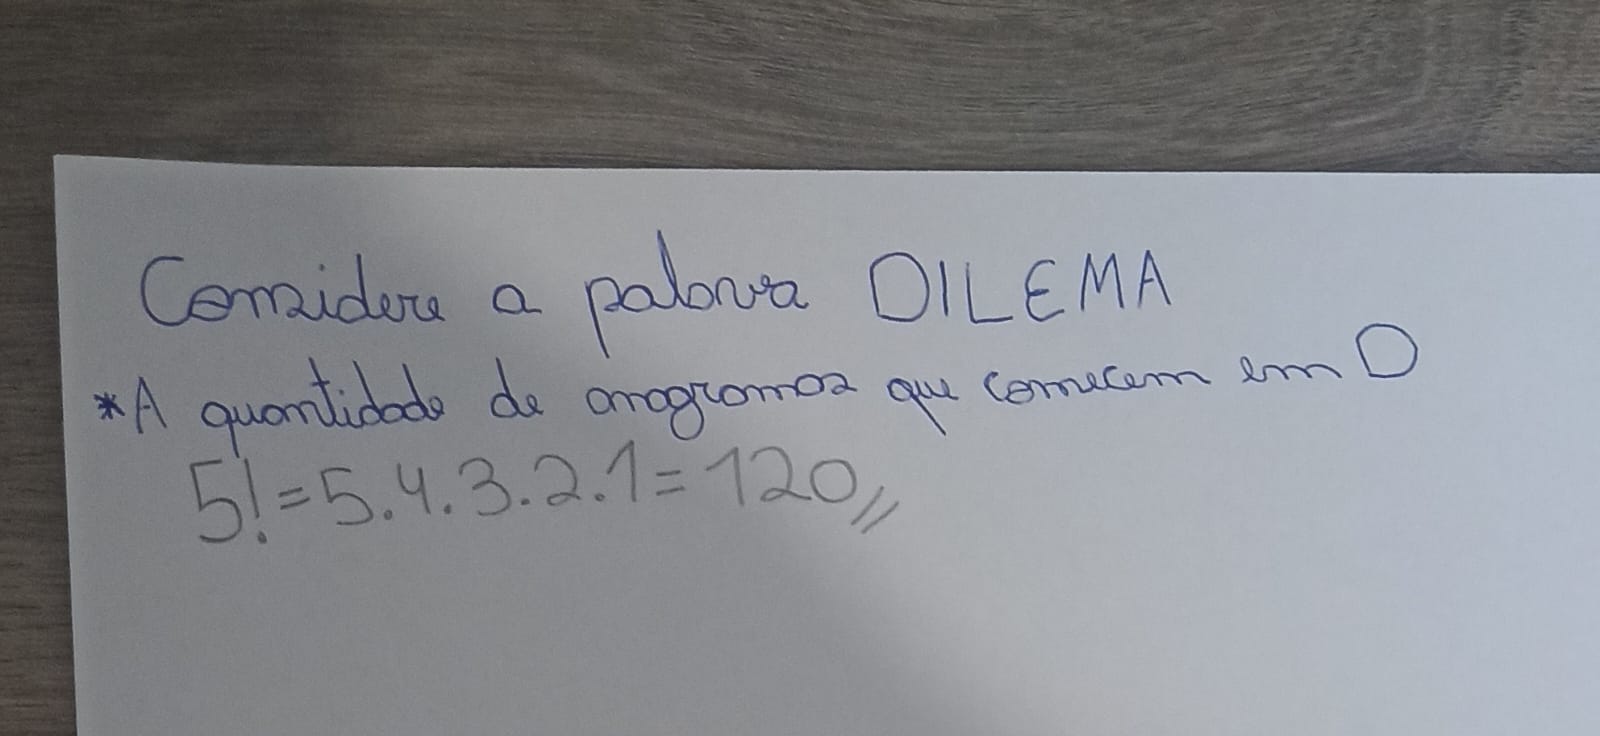 Considere a palavra DILEMA
*A quantidade de anagramas que comecem em D
5!=5.4.3.2.1=120//